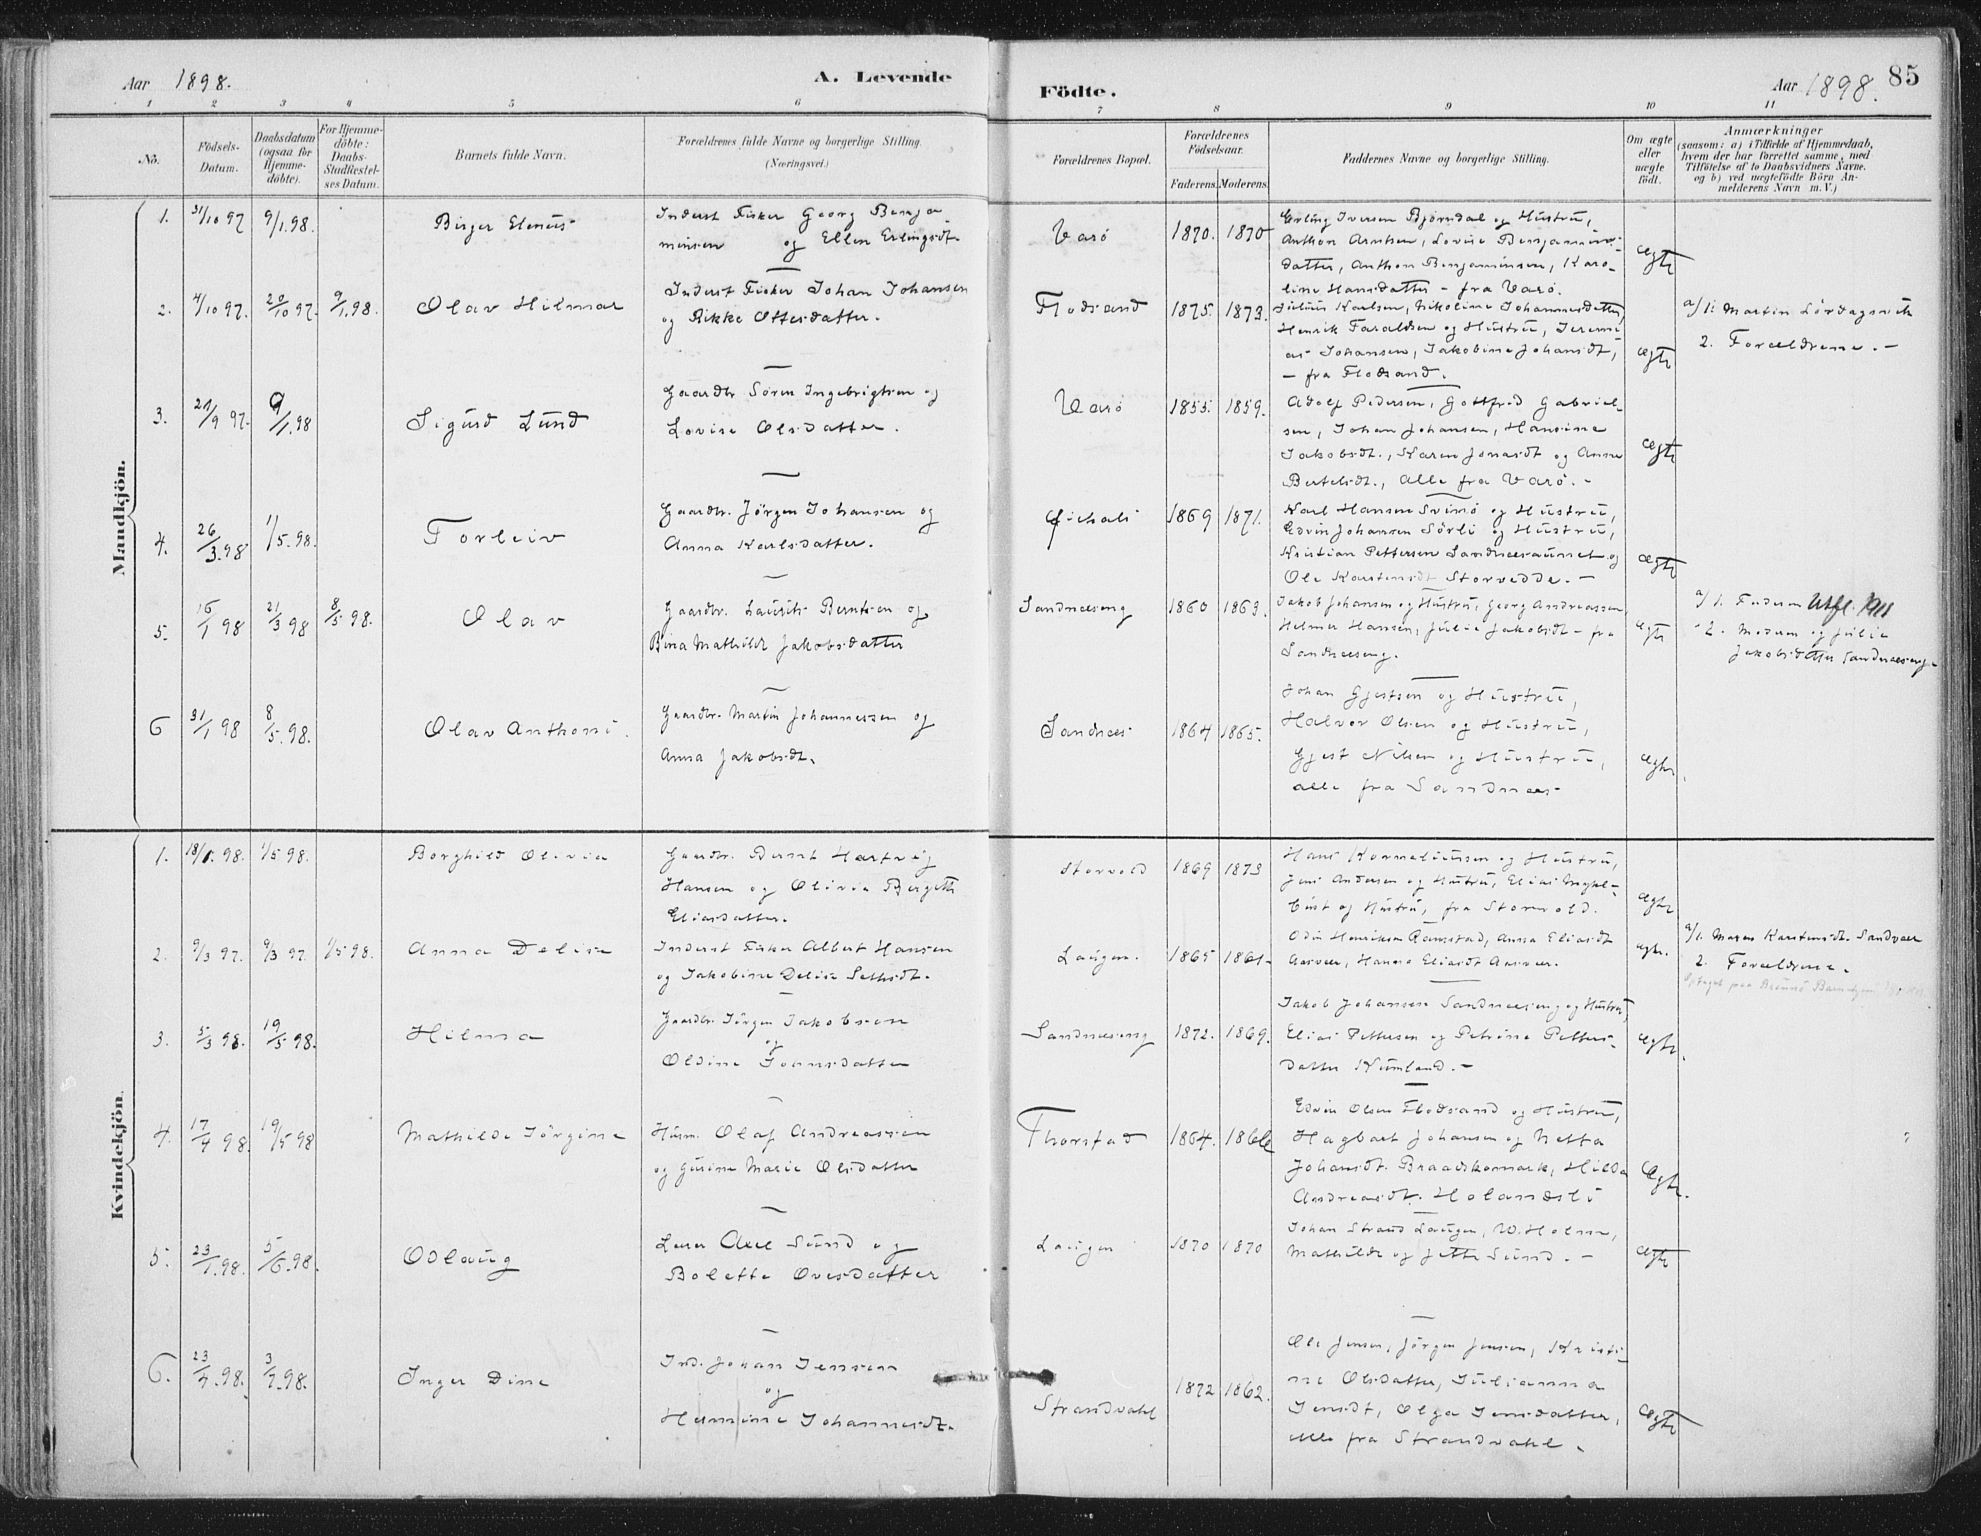 Aar 1898.
A. Levende
Födte.
Aar 1898.
85
1 2 3 4 5 6 7 8 9 10 11
No.
Födsels-Datum.
Daabsdatum (ogsaa for Hjemme-döbte).
For Hjemme-döbte: Daabs-Stadfæstel-ses Datum.
Barnets fulde Navn.
Forældrenes fulde Navne og borgerlige Stilling.
(Næringsvei.)
Forældrenes Bopæl.
Forældrenes Födselsaar.
Faderens. Moderens.
Faddernes Navne og borgerlige Stilling.
Om ægte eller uægte födt.
Anmærkninger
(saasom: a) i Tilfælde af Hjemmedaab,
hvem der har forrettet samme, med
Tilföielse af to Daabsvidners Navne.
og b) ved uægtefödte Börn An-
melderens Navn m. V.)
Mandkjön.
1. 31/10 97 9/1.98. Birger Elenius
Inderst Fisker Georg Benja
minsen og Ellen Erlingsdt.
Varö 1870. 1870
Erling Iversen Bjørndal og Hustru,
Anthon Arntsen, Lovise Benjamins-
datter, Anthon Benjaminsen, Karo-
line Hansdatter - fra Varö.
Ægte
2. 4/10 97. 20/10 97. 9/1.98. Olav Hilmar
Inderst Fisker Johan Johansen
og Rikke Ottersdatter.
Flodsand 1875. 1873.
Julius Karlsen, Nikoline Johannesdatter,
Henrik Faraldsen og Hustru, Jeremi
as Johansen, Jakobine Johansdt,
- fra Flodsand.
Ægte
a/1. Martin Lördagsvik
2. Forældrene. -
3. 21/9 97. 9/1.98 Sigurd Lund
Gaardbr. Sören Ingebrigtsen og
Lovise Olsdatter.
Varö 1855. 1859.
Adolf Pedersen, Gottfred Gabriel-
sen, Johan Johansen, Hansine
Jakobsdt., Karen Jonasdt og Anne
Bertelsdt., Alle fra Varö. -
Ægte
4. 26/3.98 1/5.98. Torleiv
Gaardbr. Jörgen Johansen og
Anna Karlsdatter.
1869 1871.
Karl Hansen Svinö og Hustru,
Edvin Johansen Sörli og Hustru,
Kristian Pettersen Sandnesaunet og
Ole Karstensdt Storvedde. -
Ægte
5. 16/1 98 21/3 98 8/5 98. Olav
Gaardbr. Laurits Berntsen og
Bina Mathilde Jakobsdatter
Sandnæseng 1860 1863.
Jakob Johansen og Hustru, Georg Andreassen
Helmer Hansen, Julie Jakobsdt - fra
Sandnæseng.
Ægte
a/1. Faderen Utfl. 1911
2. Moderen og Julie
Jakobsdatter Sandnæseng.
6 31/1 98 8/5.98. Olav Anthoni.
Gaardbr. Martin Johannessen og
Anna Jakobsdt.
Sandnæs 1864 1865.
Johan Gjestsen og Hustru,
Halvor Olsen og Hustru,
Gjest Nilsen og Hustru,
alle fra Sandnæs
Ægte.
Kvindekjön.
1. 18/1.98. 1/5 98. Borghild Olivia
Gaardbr. Bernt Hartvig
Hansen og Olivia Bergitte
Eliasdatter.
Storvold 1869 1873
Hans Korneliussen og Hustru,
Jens Andersen og Hustru, Elias Mykle-
bust og Hustru, fra Storvold.
Ægte
2. 9/3 97. 9/3 97. 1/5 98. Anna Delise
Inderst Fisker Albert Hansen
og Jakobine Delise Sethsdt.
Laugen. 1865 1861.
Odin Henriksen Ramstad, Anna Eliasdt
Aasvær, Hanna Eliasdt Aasvær.
Ægte.
a/1. Maren Karstensdt. Sandvær
2. Forældrene.
3. 5/3 98. 19/5 98. Hilma
Gaardbr. Jörgen Jakobsen
og
Oldine Johnsdatter
Sandnæseng 1872. 1869.
Jakob Johansen Sandnæseng og Hustru,
Elias Pettersen og Petrine Petters-
datter Kumland. -
Ægte.
4. 17/4 98. 19/5 98 Mathilde Jörgine
Husm. Olaf Andreassen
og Gurine Marie Olsdatter
Thorstad 1864. 1866
Edvin Olsen Flodsand og Hustru,
Hagbart Johansen og Netta
Johansdt. Braadskomark, Hilda
Andreasdt. Holandsli
Ægte.
5. 23/1.98. 5/6.98. Odlaug
Lærer Axel Sund og
Bolette Ovesdatter
Laugen 1870 1870
Johan Strand Laugen, W. Holm,
Mathilde og Jette Sund. -
Ægte
6. 23/4.98. 3/7.98. Inger Dine
Ind. Johan Jensen
og
Hermine Johannesdt.
Strandvahl 1872 1862.
Ole Jensen, Jörgen Jensen, Kristi-
ne Olsdatter, Julianna
Jensdt, Olga Jensdatter,
alle fra Strandvahl.
Ægte